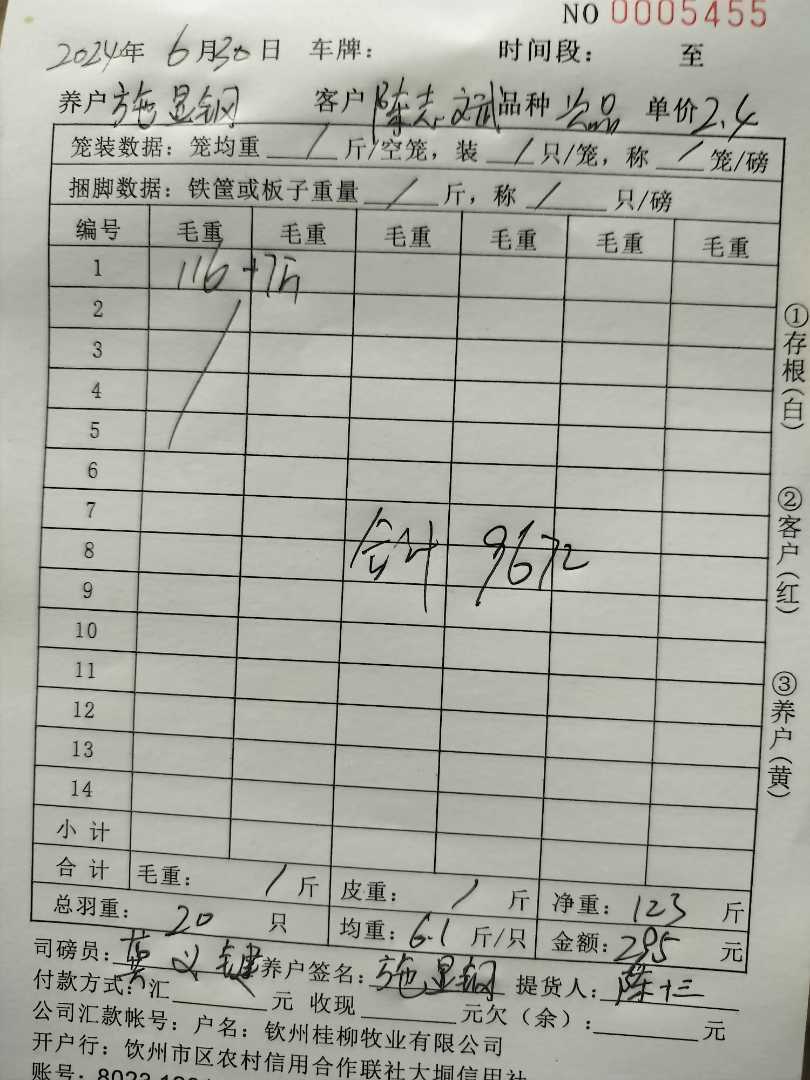 NO 0005455
2024年 6月30日 车牌: 时间段: 至
养户 施显钢 客户 陈志斌 品种 次品 单价 2.4
笼装数据: 笼均重 / 斤/空笼, 装 / 只/笼, 称 / 笼/磅
捆脚数据: 铁筐或板子重量 / 斤, 称 / 只/磅
编号 毛重 毛重 毛重 毛重 毛重 毛重
1 116 +7斤
2
3
4
5
6
7
8 合计 967元
9
10
11
12
13
14
小计
合计 毛重: / 斤 皮重: / 斤 净重: 123 斤
总羽重: 20 只 均重: 6.1 斤/只 金额: 295 元
司磅员: 黄义键 养户签名: 施显钢 提货人: 陈十三
付款方式: 汇 元 收现 元欠(余): 元
公司汇款帐号: 户名: 钦州桂柳牧业有限公司
开户行: 钦州市区农村信用合作联社大垌信用社
账号: 8023
①存根(白)
②客户(红)
③养户(黄)